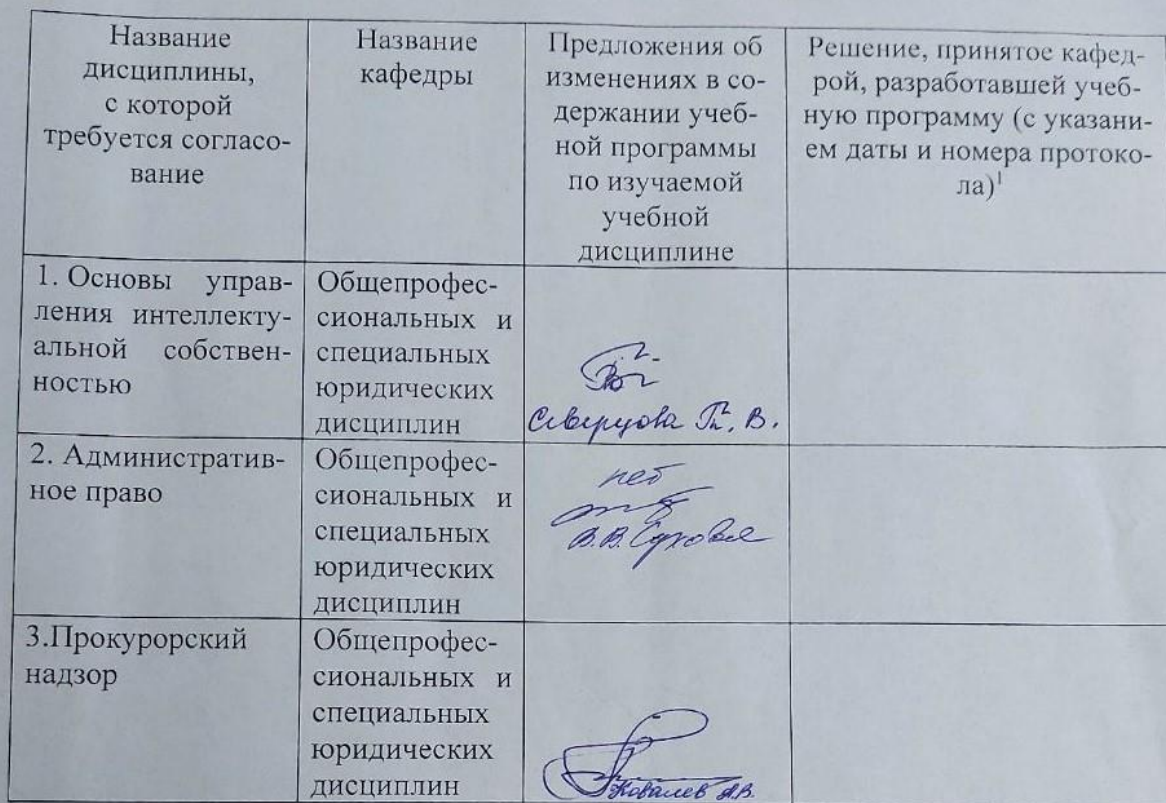 Название
дисциплины,
с которой
требуется согласо-
вание
Название
кафедры
Предложения об
изменениях в со-
держании учеб-
ной программы
по изучаемой
учебной
дисциплине
Решение, принятое кафед-
рой, разработавшей учеб-
ную программу (с указани-
ем даты и номера протоко-
ла)¹
1. Основы управ-
ления интеллекту-
альной собствен-
ностью
Общепрофес-
сиональных и
специальных
юридических
дисциплин
Сиверцова Т. В.
2. Административ-
ное право
Общепрофес-
сиональных и
специальных
юридических
дисциплин
нет
В.В.
3.Прокурорский
надзор
Общепрофес-
сиональных и
специальных
юридических
дисциплин
Ковалев А.В.